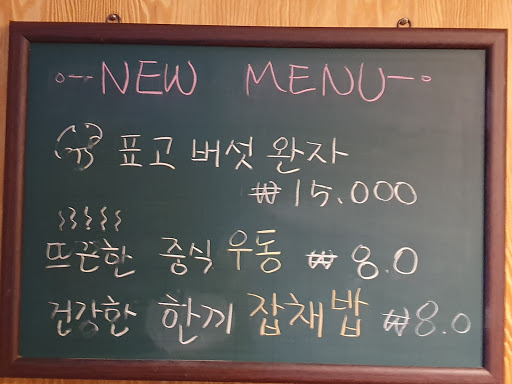 NEW MENU
표고 버섯 완자
₩ 15.000
뜨끈한 중식 우동 ₩ 8.0
건강한 한끼 잡채밥 ₩8.0